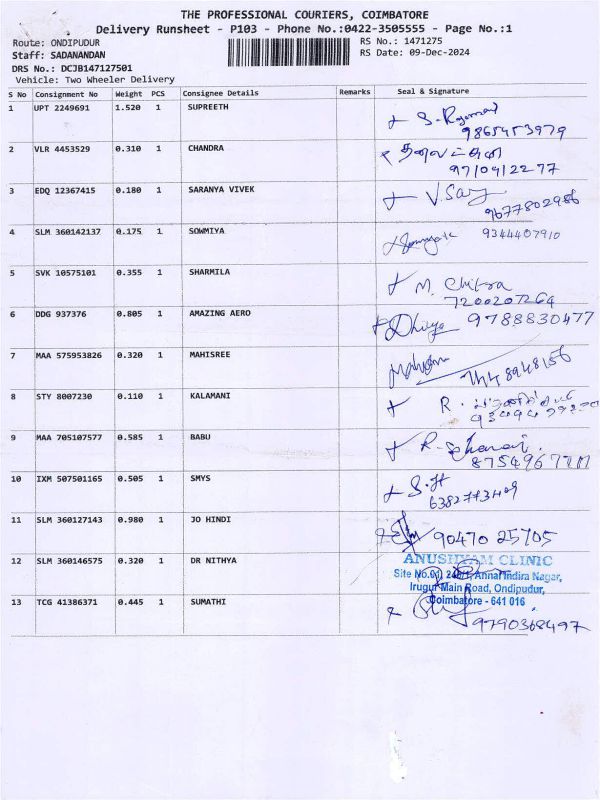 THE PROFESSIONAL COURIERS, COIMBATORE
Delivery Runsheet - P103 - Phone No.:0422-3505555 - Page No.:1
Route: ONDIPUDUR RS No.: 1471275
Staff: SADANANDAN RS Date: 09-Dec-2024
DRS No.: DCJB147127501
Vehicle: Two Wheeler Delivery
S No Consignment No Weight PCS Consignee Details Remarks Seal & Signature
1 UPT 2249691 1.520 1 SUPREETH
9865453979
2 VLR 4453529 0.310 1 CHANDRA
9710412277
3 EDQ 12367415 0.180 1 SARANYA VIVEK V. Sary
9677802986
4 SLM 360142137 0.175 1 SOWMIYA 9344407910
5 SVK 10575101 0.355 1 SHARMILA M. Chitra
7200207264
6 DDG 937376 0.805 1 AMAZING AERO Dhivya 9788830477
7 MAA 575953826 0.320 1 MAHISREE
8 STY 8007230 0.110 1 KALAMANI R.
9 MAA 705107577 0.585 1 BABU
10 IXM 507501165 0.505 1 SMYS
11 SLM 360127143 0.980 1 JO HINDI 90470 25705
12 SLM 360146575 0.320 1 DR NITHYA ANUSHYAM CLINIC
Site No.01, Annai Indira Nagar,
Irugur Main Road, Ondipudur,
Coimbatore - 641 016
13 TCG 41386371 0.445 1 SUMATHI
9790368497